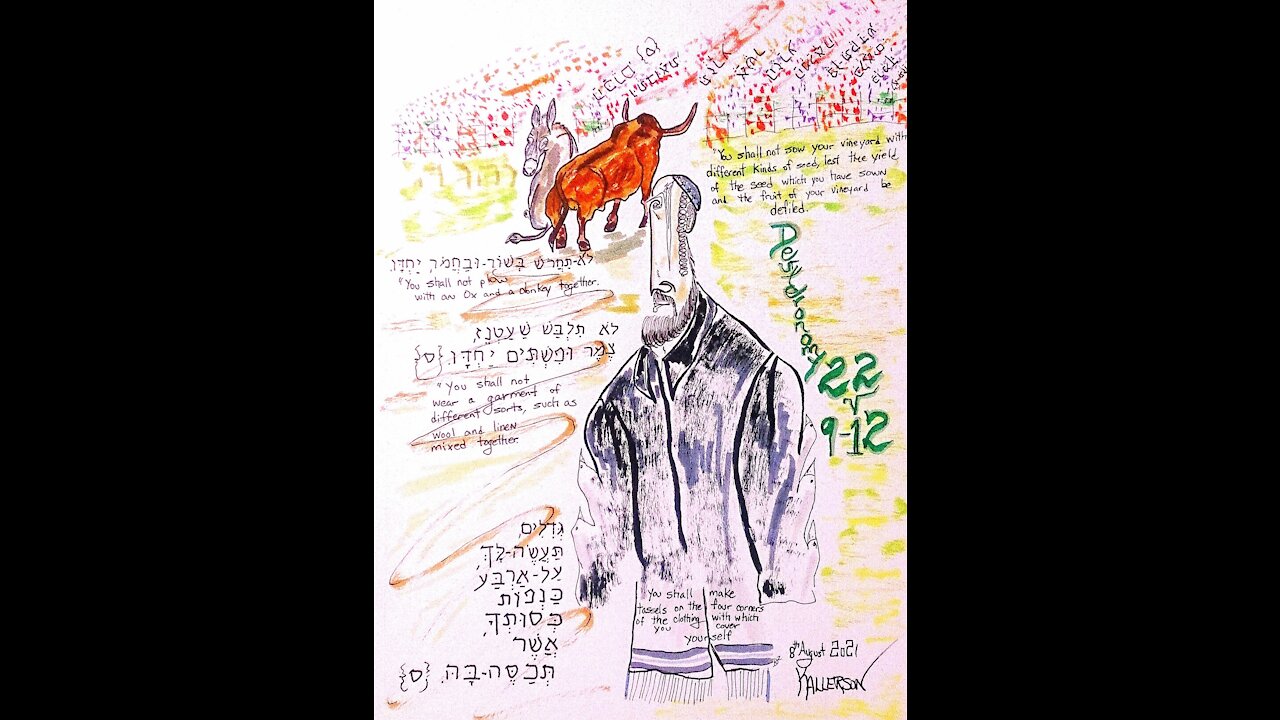 "You shall not sow your vineyard with
different kinds of seed, lest thee yield
of the seed which you have sown
and the fruit of your vineyard be
defiled.
Deuteronomy
22
v
9-12
לא-תַחֲרֹשׁ בְּשׁוֹר-וּבַחֲמֹר, יַחְדָּו.
"You shall not plow
with an Ox and a donkey together.
לֹא תִלְבַּשׁ שַׁעַטְנֵז,
צֶמֶר וּפִשְׁתִּים יַחְדָּו. {ס}
"You shall not
wear a garment of
different sorts, such as
wool and linen
mixed together.
גְּדִלִים,
תַּעֲשֶׂה-לָּךְ,
עַל-אַרְבַּע
כַּנְפוֹת
כְּסוּתְךָ,
אֲשֶׁר
תְּכַסֶּה-בָּהּ. {ס}
You shall make
tassels on the four corners
of the clothing with which
you cover
yourself
8th August 2021
KALLERSON